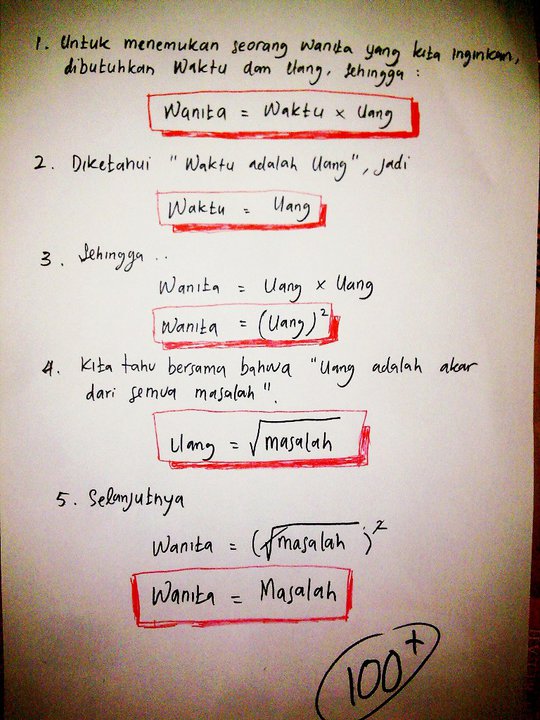 1. Untuk menemukan seorang wanita yang kita inginkan,
dibutuhkan Waktu dan Uang, sehingga :
Wanita = Waktu x Uang
2. Diketahui "Waktu adalah Uang", jadi
Waktu = Uang
3. Sehingga ..
Wanita = Uang x Uang
Wanita = (Uang)²
4. Kita tahu bersama bahwa "Uang adalah akar
dari semua masalah".
Uang = √masalah
5. Selanjutnya
Wanita = (√masalah)²
Wanita = Masalah
100+